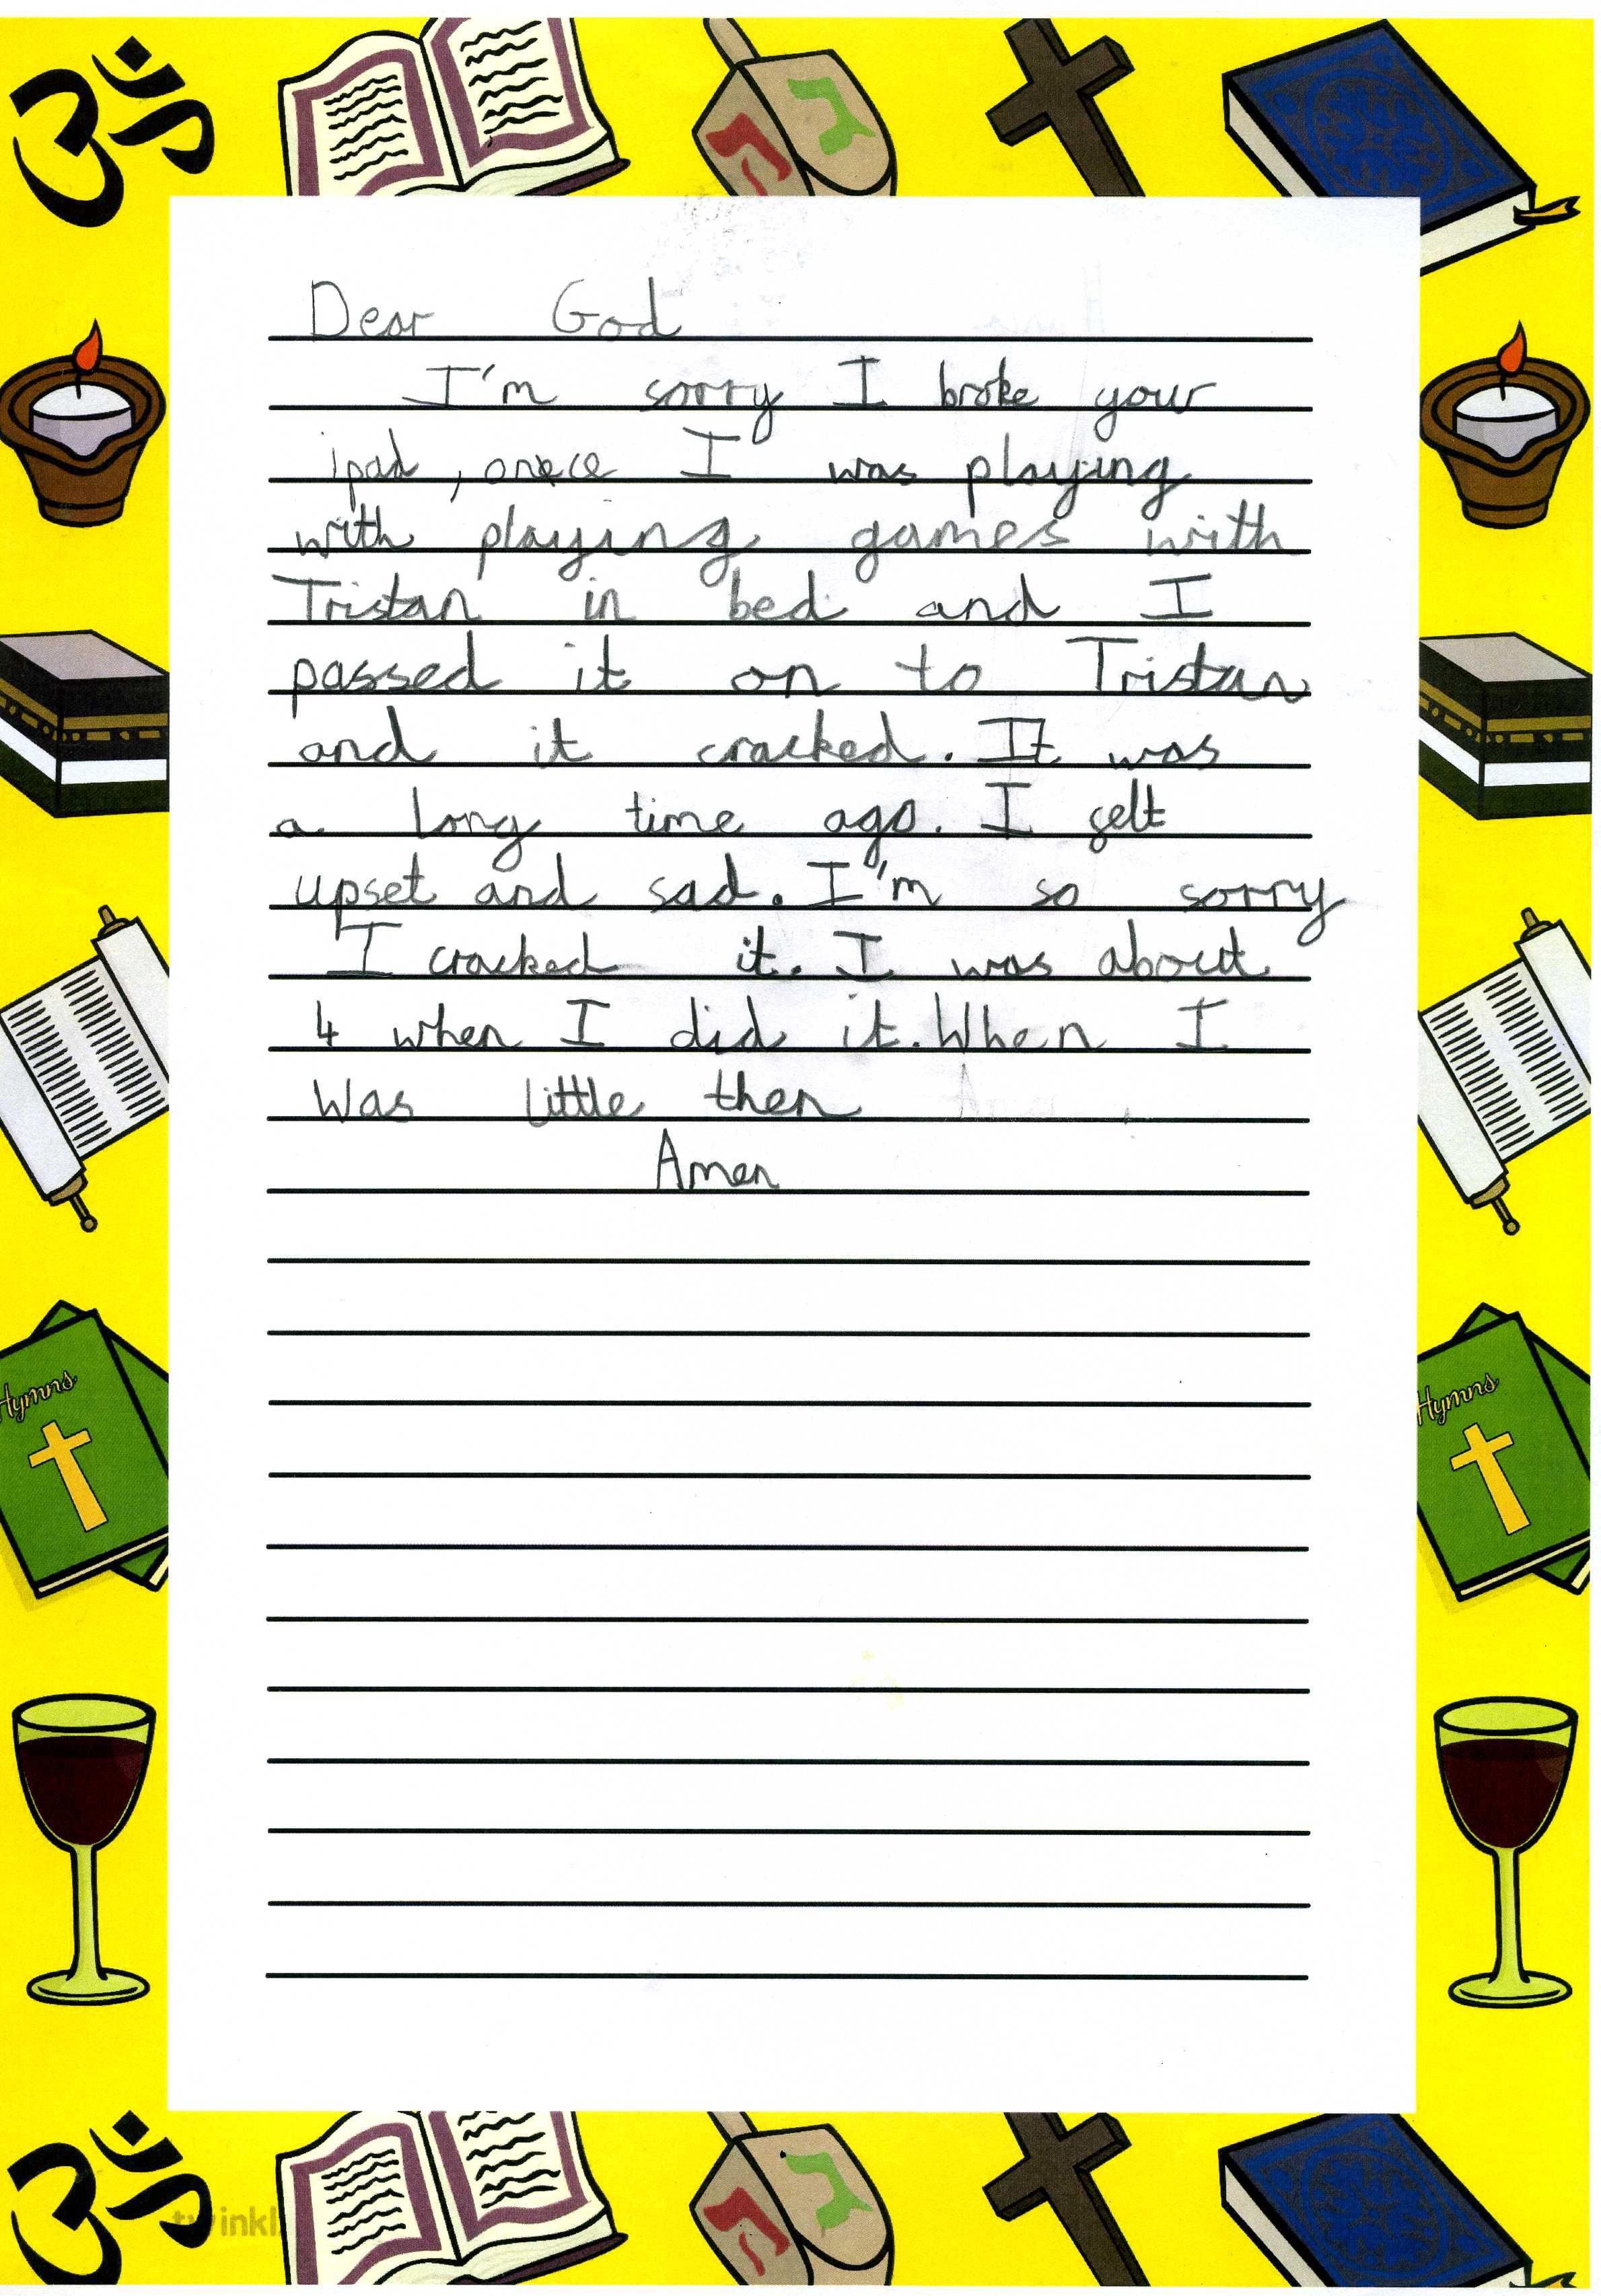 Dear God
I'm sorry I broke your
ipad, onece I was playing
with playing games with
Tristan in bed and I
passed it on to Tristan
and it cracked. It was
a long time ago. I felt
upset and sad. I'm so sorry
I cracked it. I was about
4 when I did it. When I
Was little then
Amen
Hymns
Hymns
twinkl